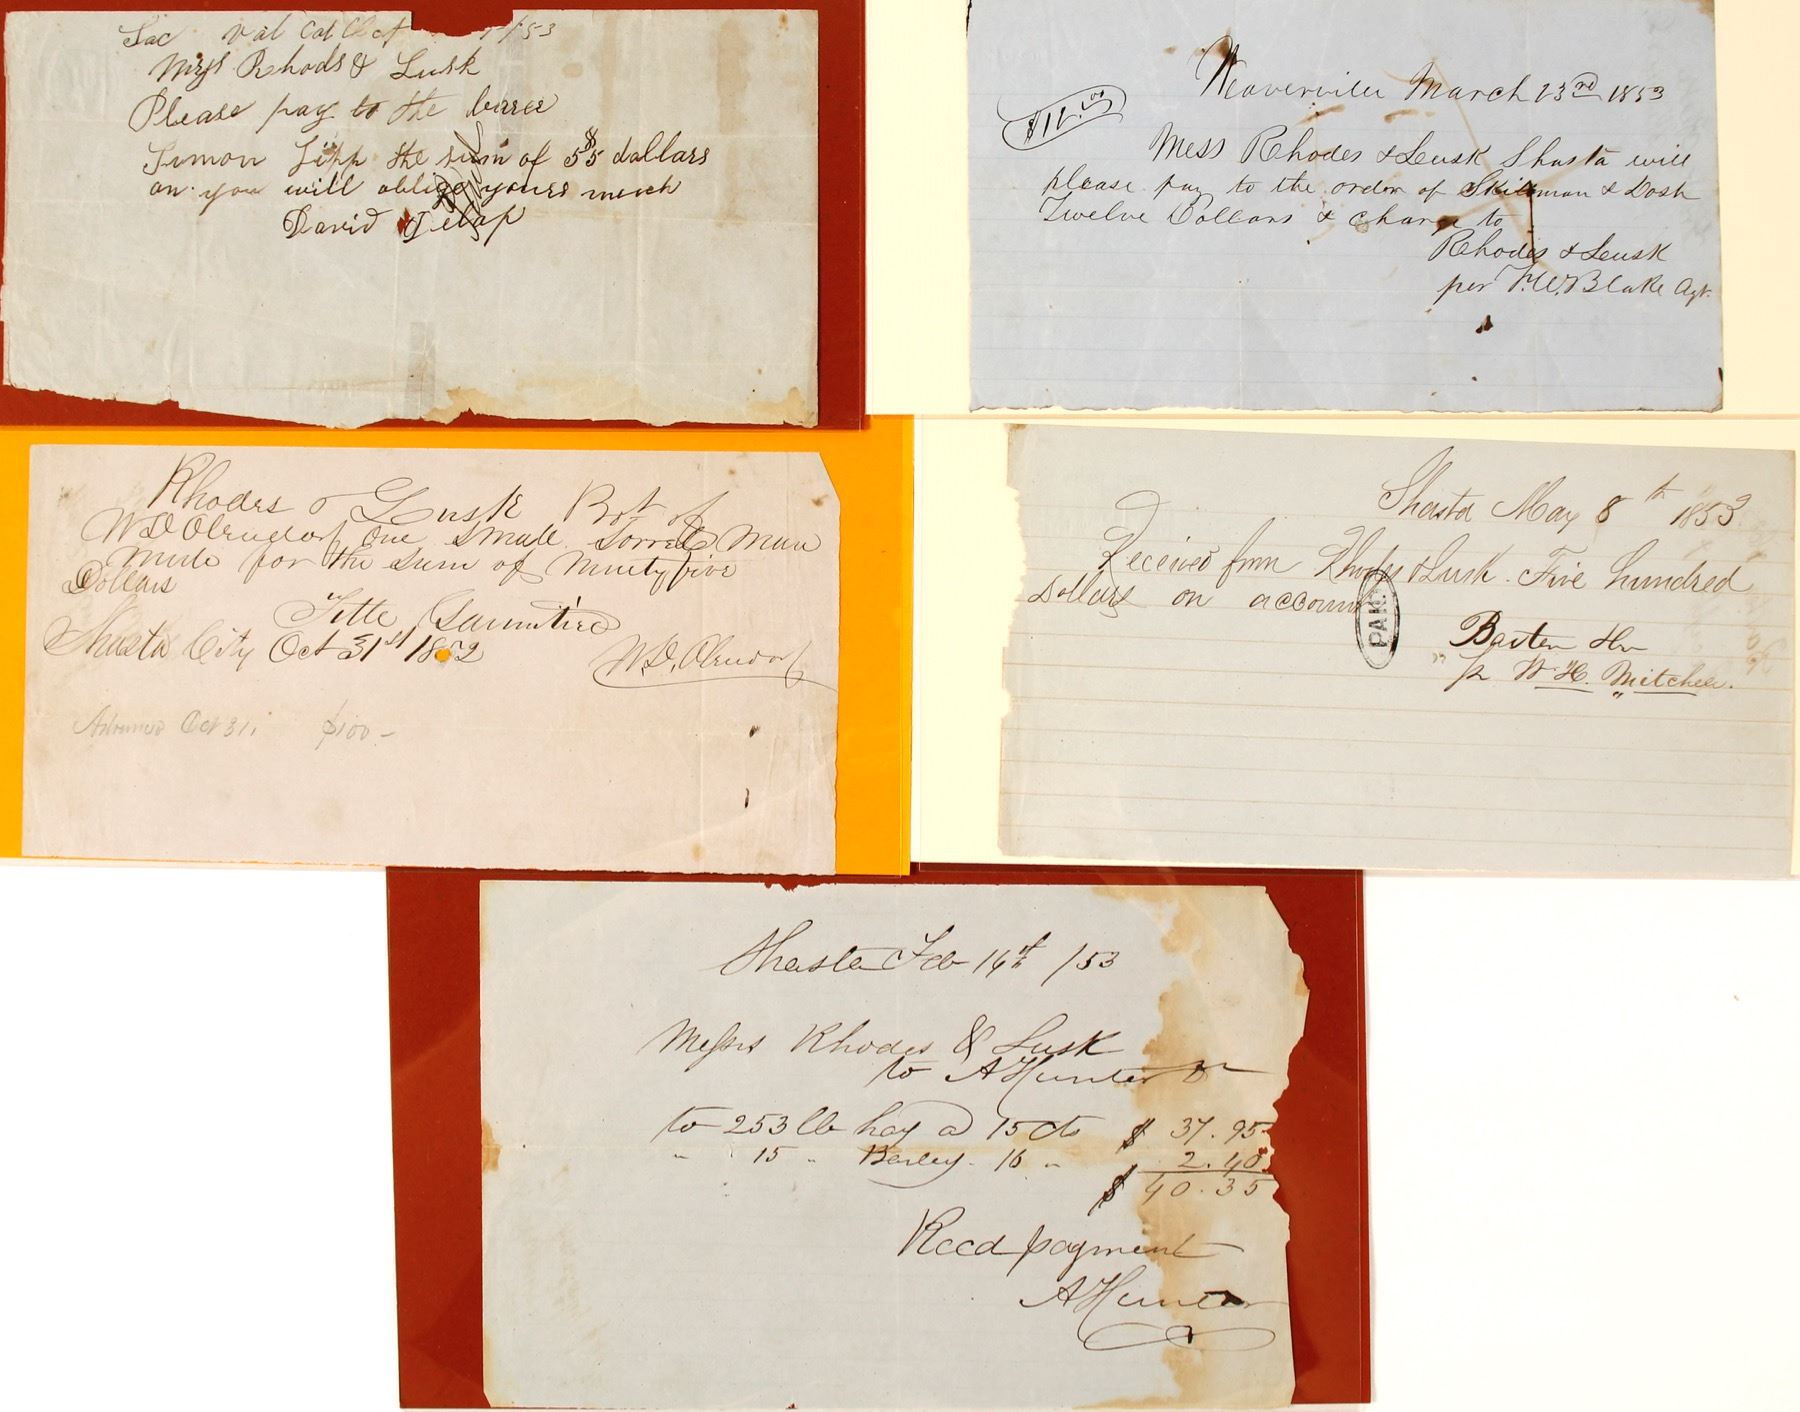 Sac Val Cal Oct /53
Mrss Rhods & Lusk
Please pay to the barree
Simon Lipp the sum of $55 dollars
an you will oblige yours much
David Jelap
Weaverville March 23rd 1853
$12.00
Mess Rhodes & Lusk Shasta will
please pay to the order of Skillman & Dosh
Twelve Dollars & charge to
Rhodes & Lusk
per F.W. Blake Agt.
Rhodes & Lusk Bot of
W D Olendorf One Small Sorrell Mare
Mule for the Sum of Ninety five
Dollars
Title Garuntied
Shasta City Oct 31st 1852
W.D. Olendorf
Oct 31. $100-
Shasta May 8th 1853
Received from Rhodes & Lusk. Five hundred
Dollars on account
PAID
Baxter
pr W. H. Mitchell.
Shasta Feb 14th /53
Messrs Rhodes & Lusk
to A Hunter Dr
to 253 lb hay a 15 cts $ 37.95
" 15 " Barley " 16 " 2.40
$ 40.35
Recd payment
A Hunter